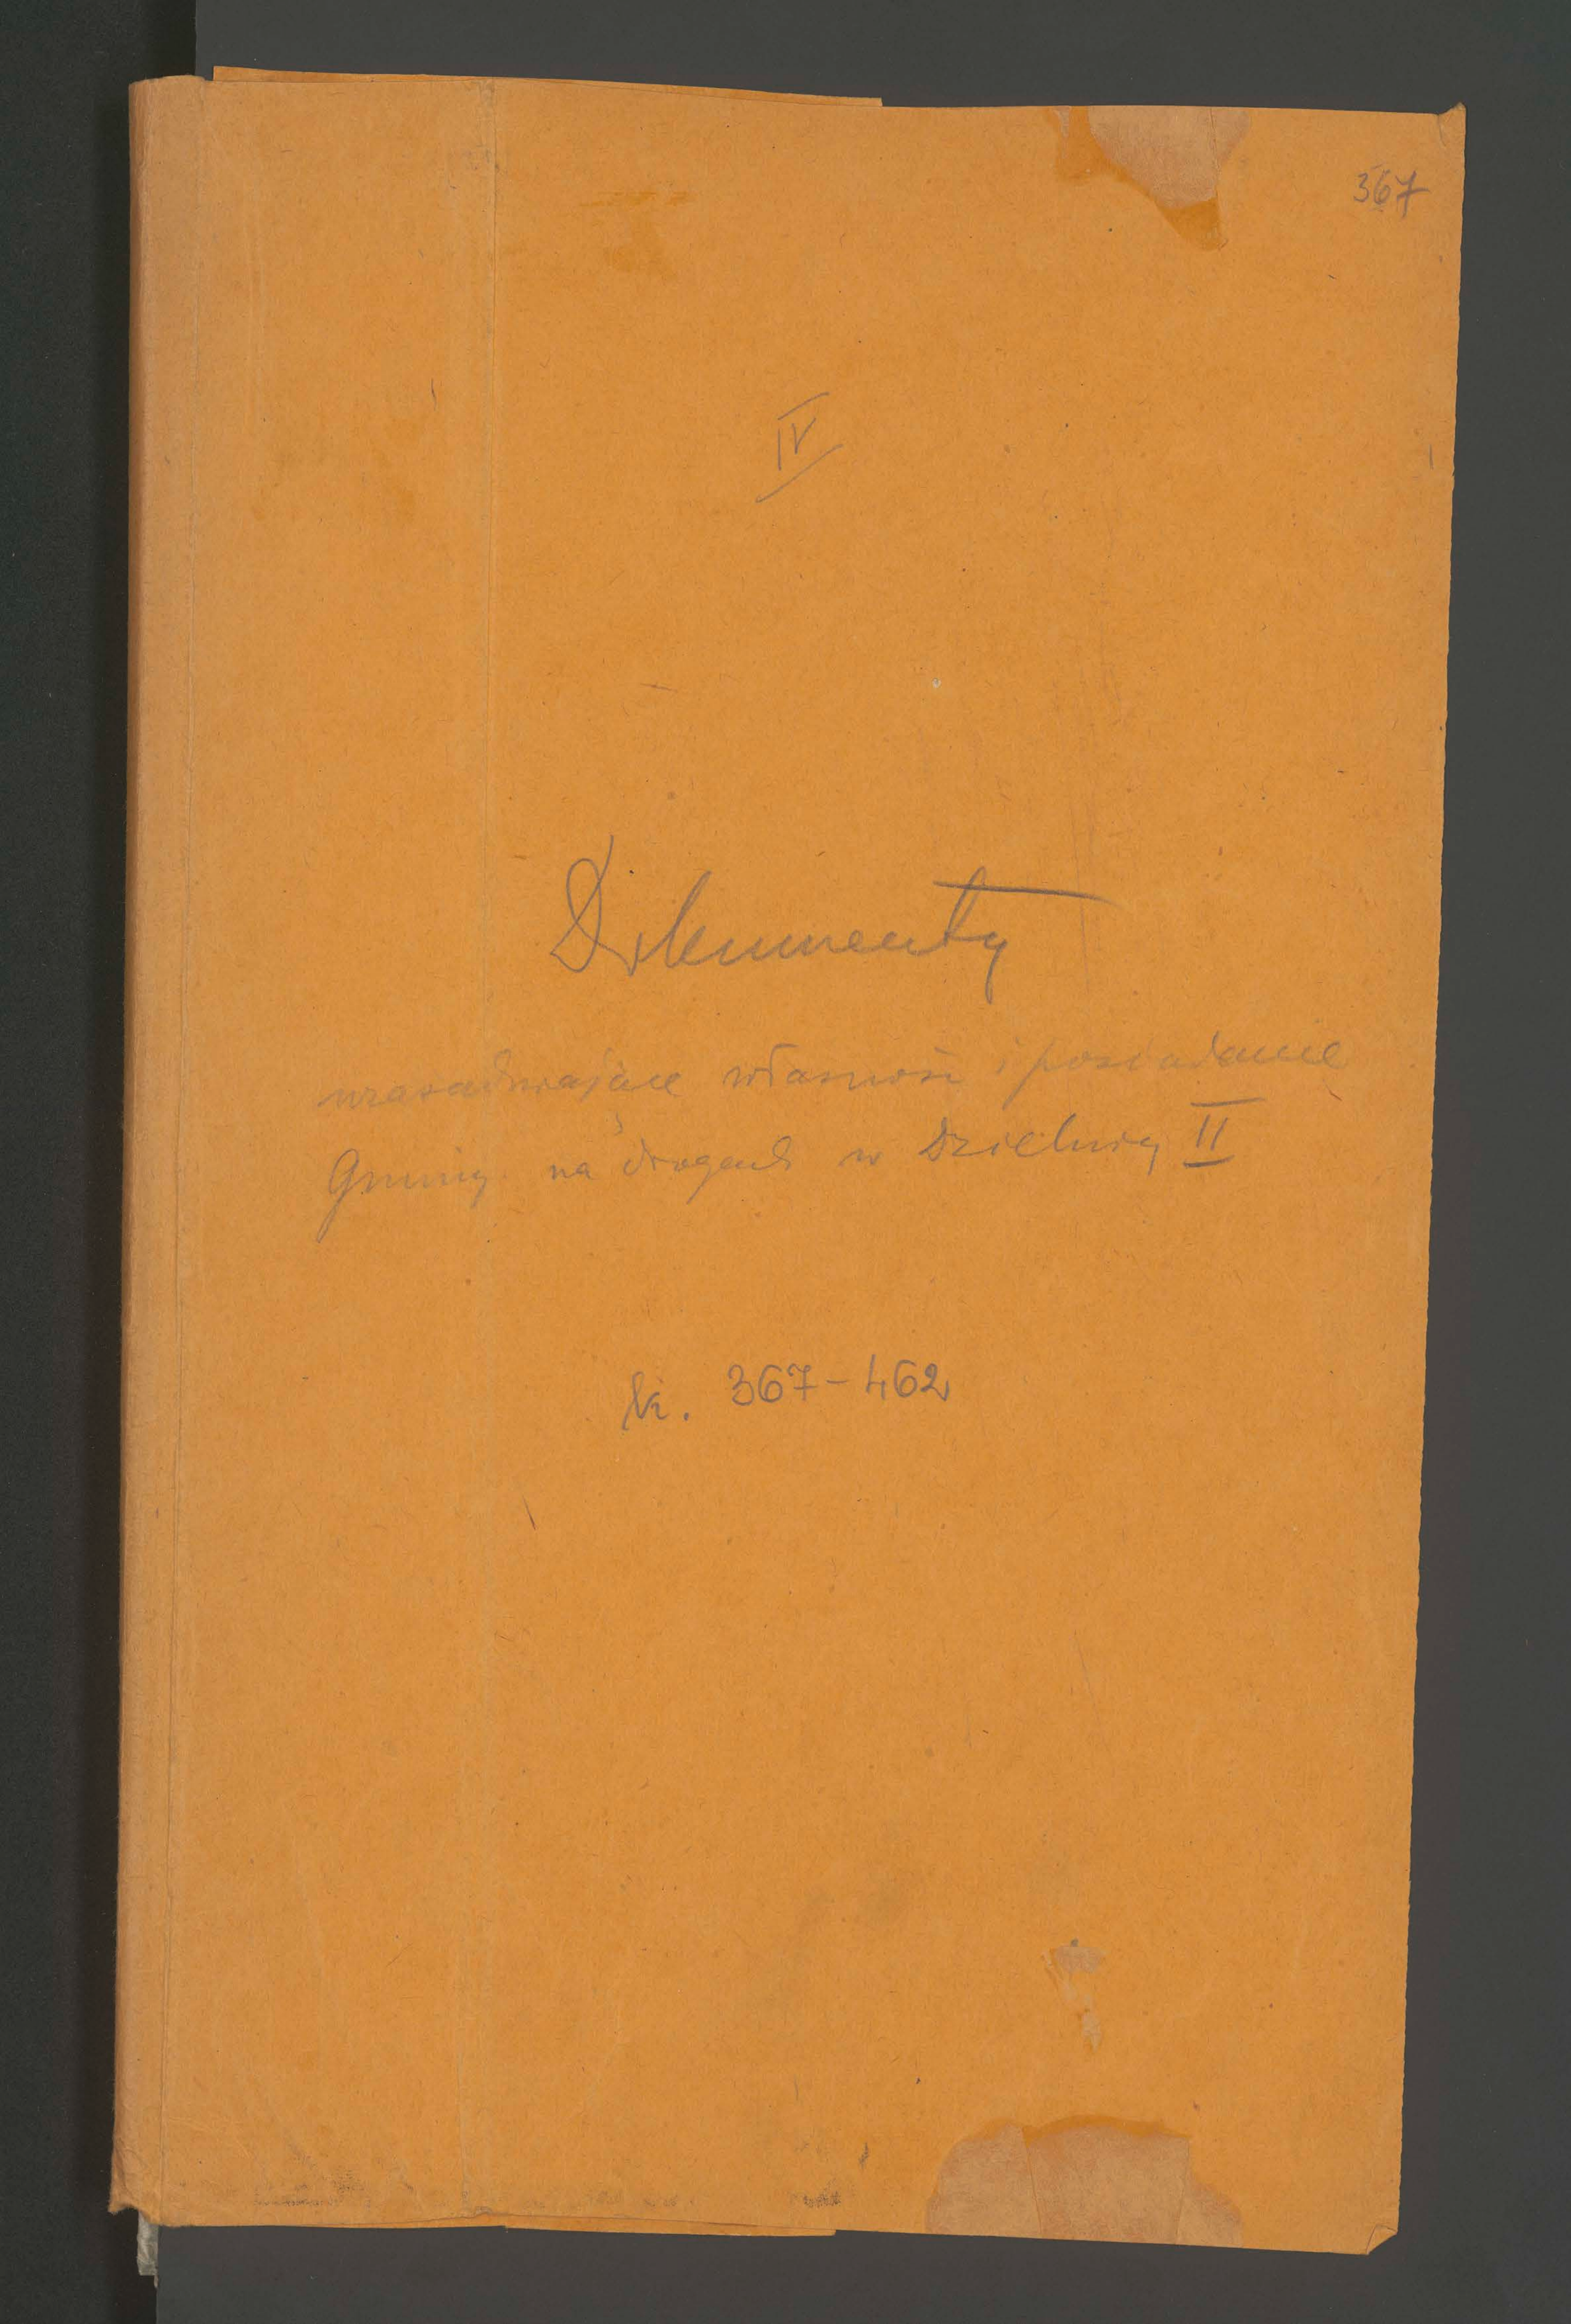 367
IV
Dokumenty
uzasadniające własność i posiadanie
Gminy na drogach w Dzielnicy II
k. 367-462